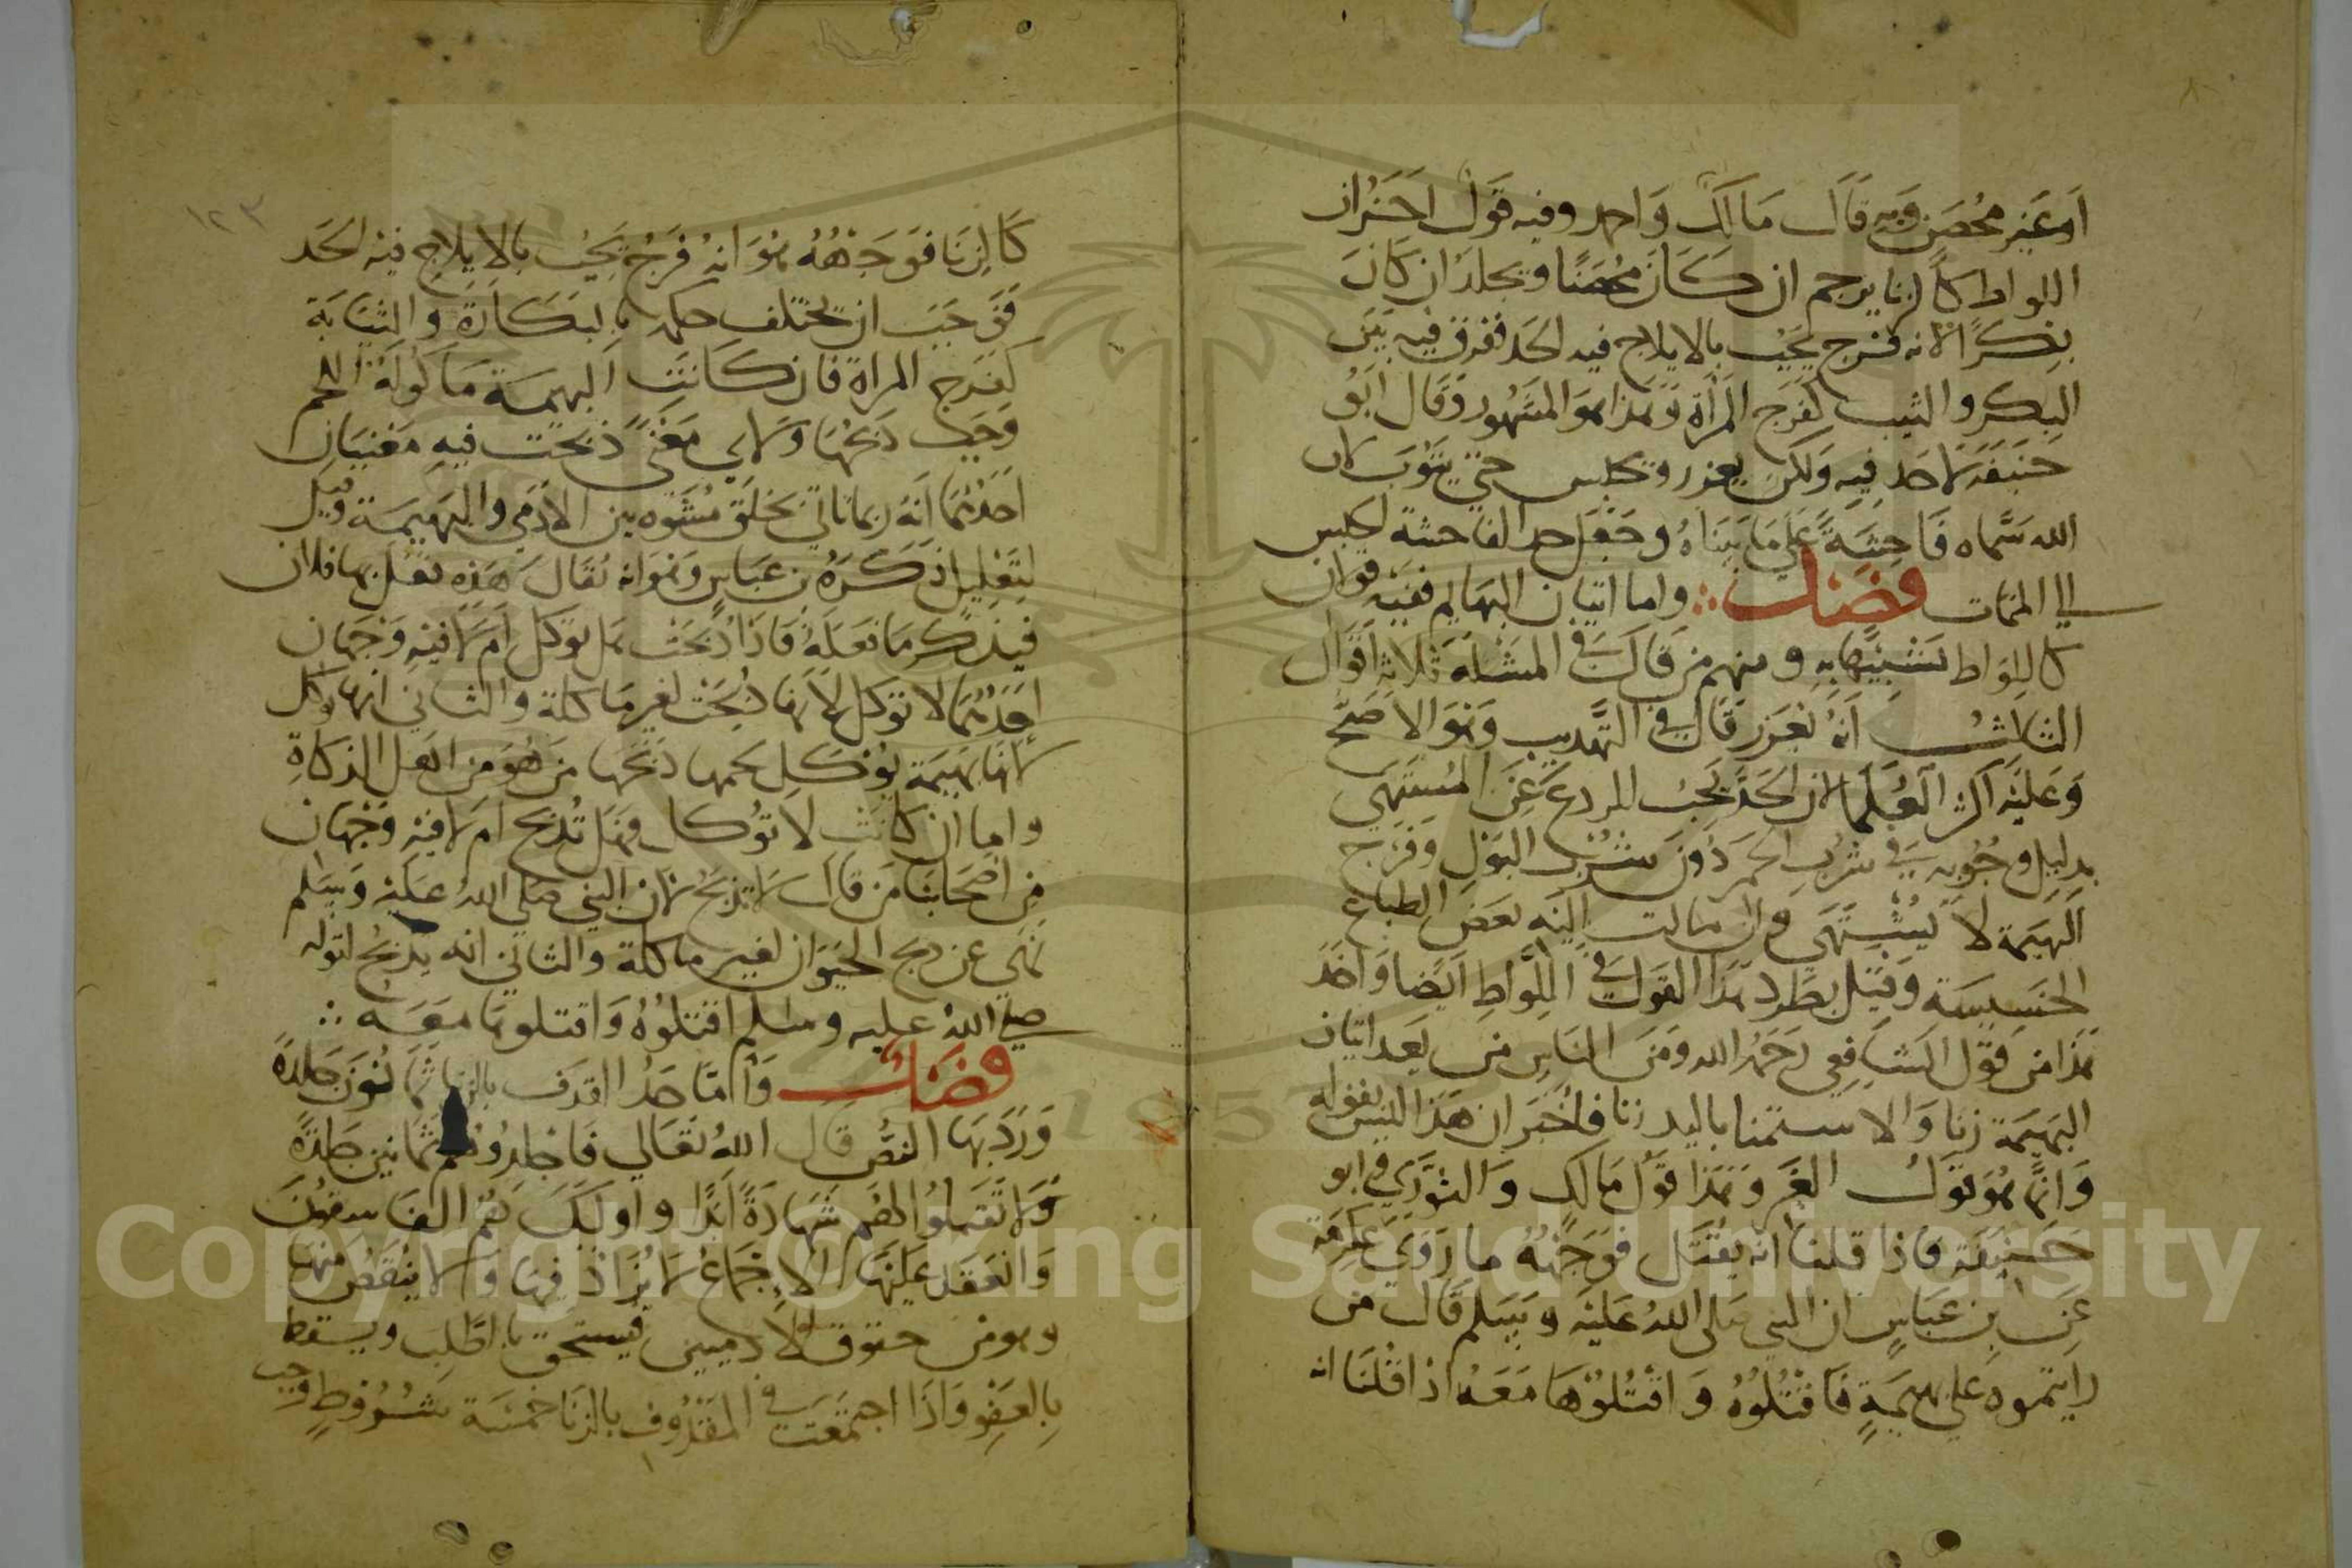 او غير محصن وبه قال مالك واحمد وفيه قول اخران
اللواط كالزنا يرجم ان كان محصنا ويجلد ان كان
بكرا لانه فرج يجب بالايلاج فيه الحد ففرق فيه بين
البكر والثيب كفرج المرأة وهذا هو المشهور وقال ابو
حنيفة لا حد فيه ولكن يعزر ويحبس حتي يتوب لان
الله سماه فاحشة علي ما بيناه وجعل حد الفاحشة الحبس
الي الممات فصل واما اتيان البهايم ففيه قولان
كاللواط تشبيها به ومنهم من قال في المسئلة ثلاثة اقوال
الثالث انه يعزر قال في التهذيب وهو الاصح
وعليه اكثر العلما لان الحد يجب للردع عن المشتهي
بدليل وجوبه في شرب الخمر دون شرب البول وفرج
البهيمة لا يشتهي وان مالت اليه بعض الطباع
الخسيسة وقيل بطرد هذا القول في اللواط ايضا واخذ
هذا من قول الشافعي رحمه الله ومن الناس من يعد اتيان
البهيمة زنا والاستمنا باليد زنا فاخبر ان هذا ليس بقوله
وانما هو قول الغير وهذا قول مالك والثوري وابو
حنيفة فاذا قلنا انه يقتل فوجهه ما روي عكرمة
عن ابن عباس ان النبي صلى الله عليه وسلم قال من
رايتموه علي بهيمة فاقتلوه واقتلوها معه اذا قلنا انه
١٢٣
كالزنا فوجهه هو انه فرج يجب بالايلاج فيه الحد
فوجب ان يختلف حكمه بالبكارة والثيابة
كفرج المراة فان كانت البهيمة ماكولة اللحم
وجب ذبحها ولاي معنى ذبحت فيه معنيان
احدهما انه ربما تاتي بخلق مشوه بين الادمي والبهيمة وقيل
لتعليل ذكره بن عباس وهو انه يقال هذه فعل بها فلان
فيذكر ما فعله فاذا ذبحت هل توكل ام لا فيه وجهان
احدهما لا توكل لانها ذبحت لغير ماكلة والثاني انها توكل
لانها بهيمة يوكل لحمها ذبحها من هو من اهل الذكاة
واما ان كانت لا توكل فهل تذبح ام لا فيه وجهان
من اصحابنا من قال لا تذبح لان النبي صلي الله عليه وسلم
نهي عن ذبح الحيوان لغير ماكلة والثاني انه يذبح لقوله
صلي الله عليه وسلم اقتلوه واقتلوها معه
فصل واما حد القذف بالزنا ثمانون جلدة
ورد بها النص قال الله تعالي فاجلدوهم ثمانين جلدة
ولا تقبلوا لهم شهادة ابدا واولئك هم الفاسقون
وانعقد عليها الاجماع لا يزاد فيها ولا ينقص منها
وهو من حقوق الادميين يستحق بالطلب ويسقط
بالعفو واذا اجتمعت في المقذوف بالزنا خمسة شروط وجب
Copyright © King Saud University
1957